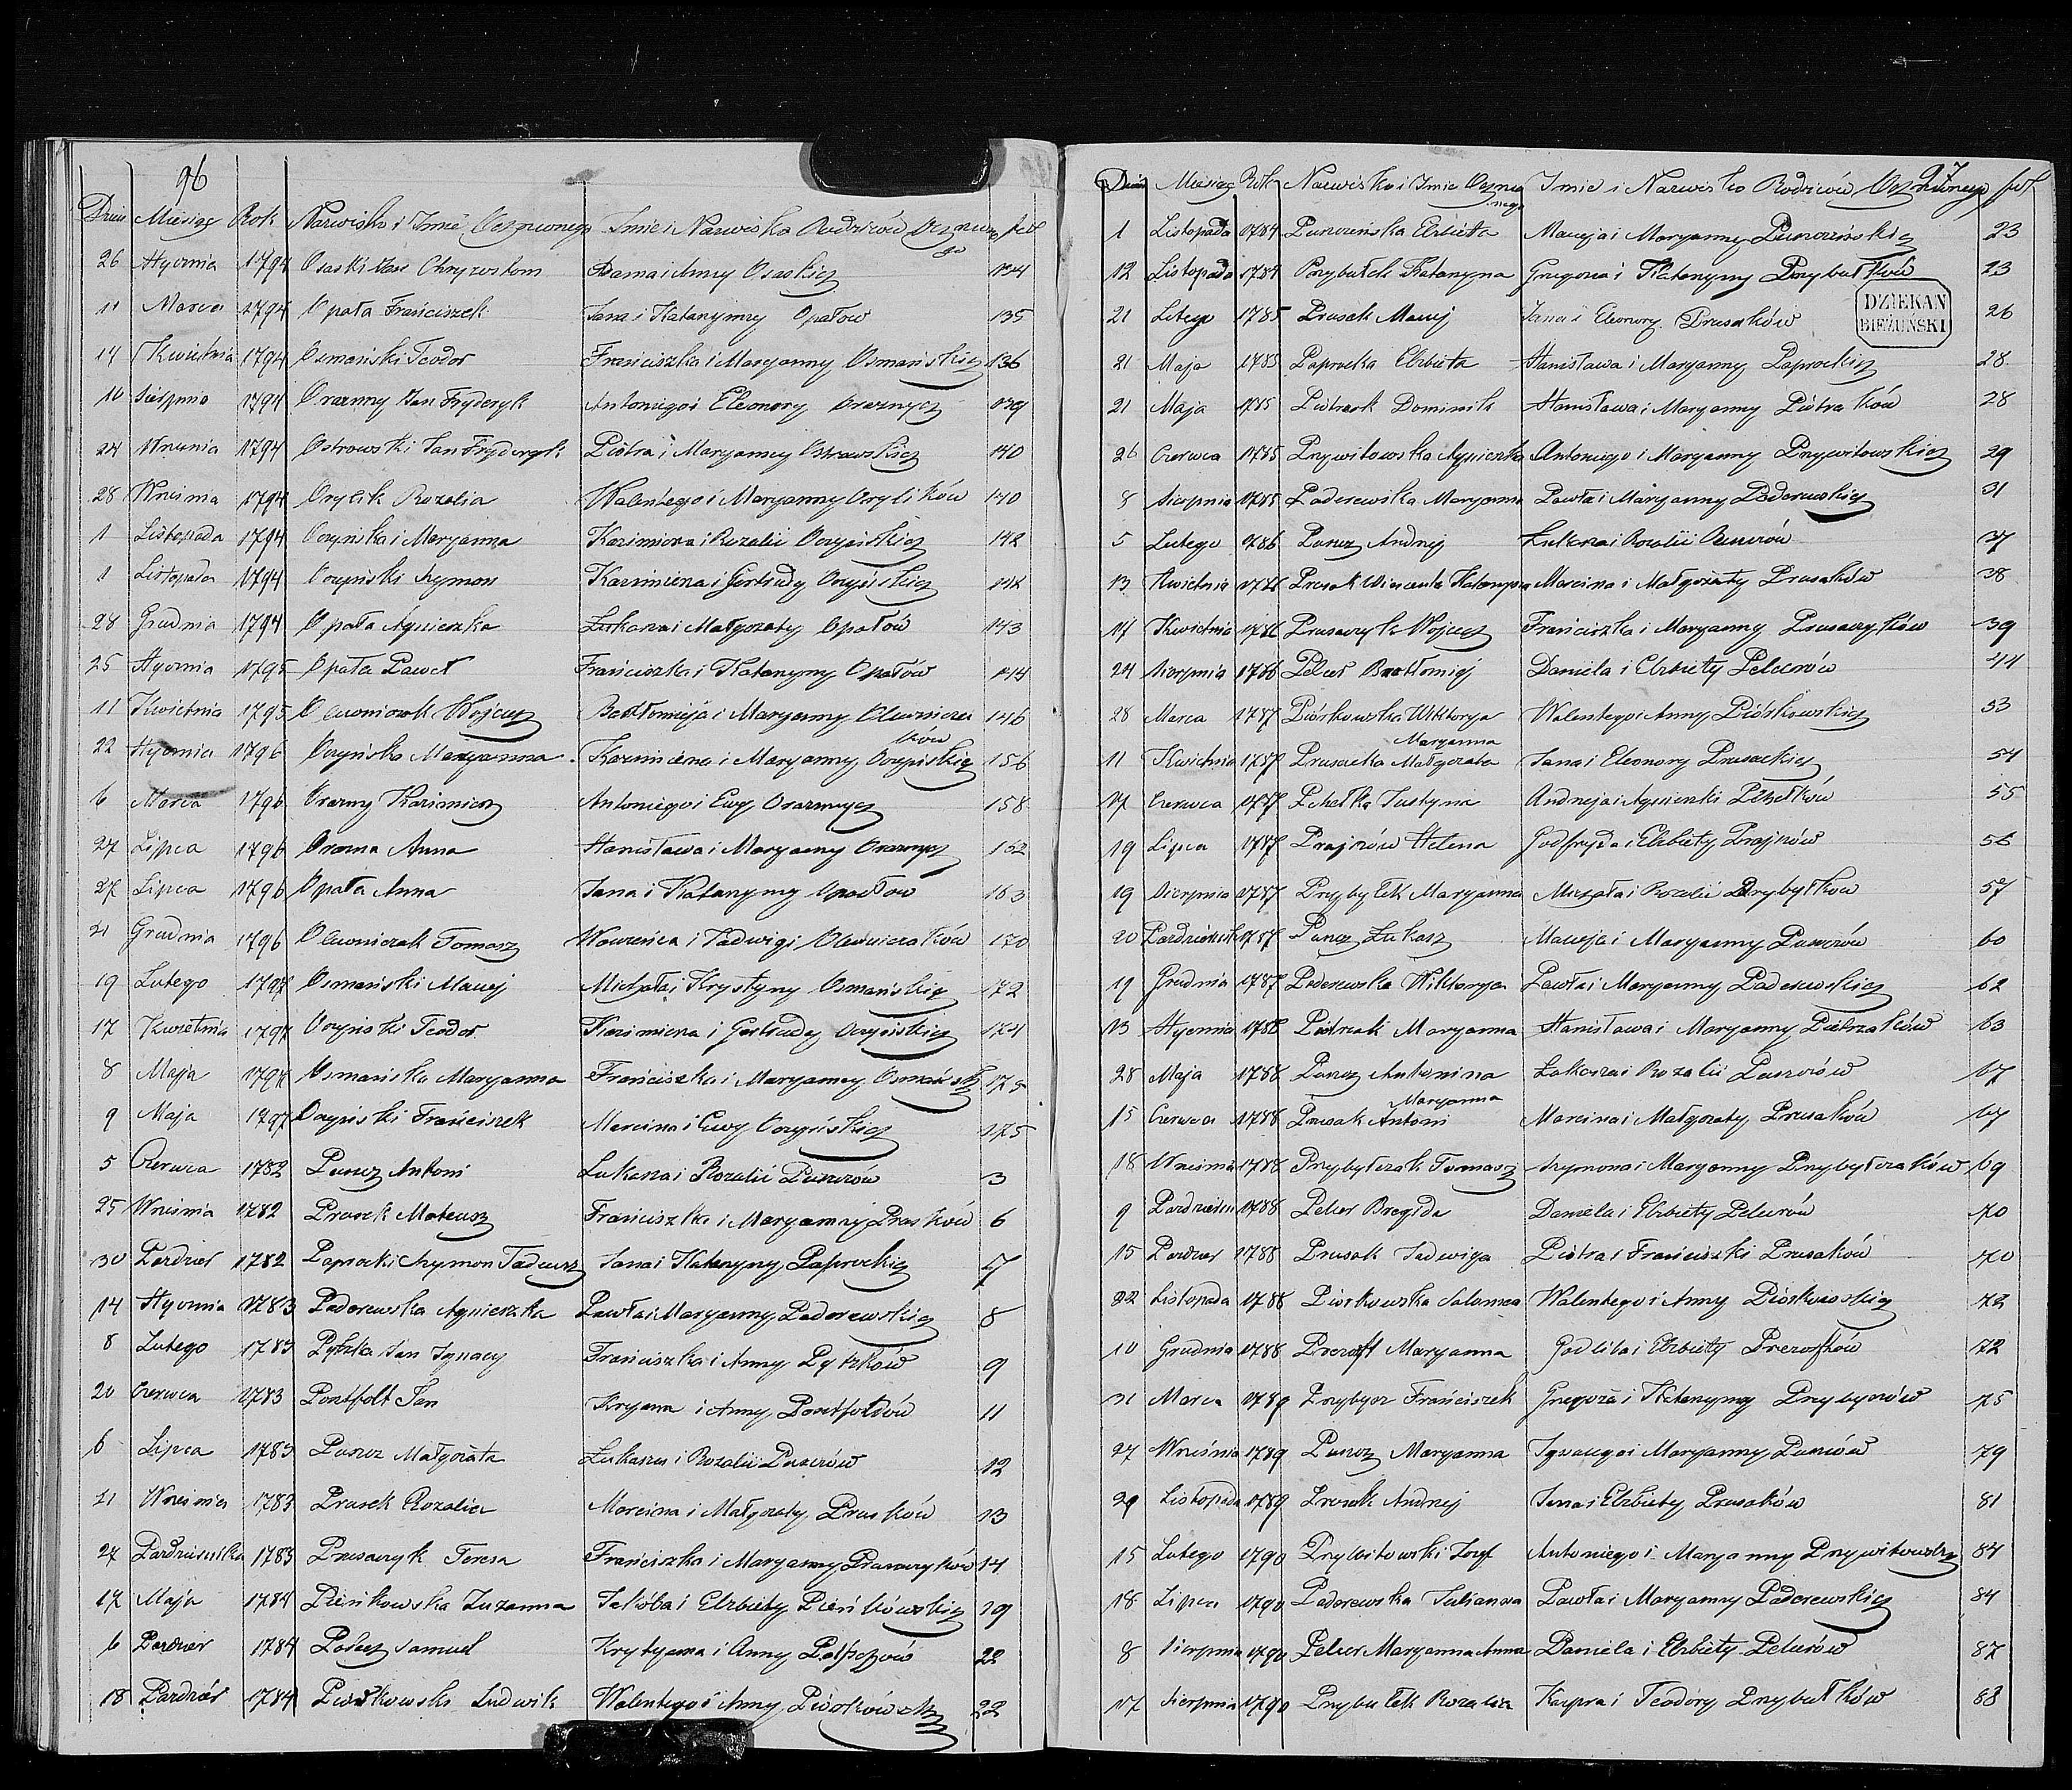 96
Dzień Miesiąc Rok Nazwisko i Imie Oczszczonego Imie i Nazwisko Rodziców
26 Stycznia 1794 Osaski Jan Chryzostom Adama i Anny Osaskich 134
11 Marca 1794 Opała Franciszek Jana i Katarzyny Opałów 135
14 Kwietnia 1794 Osmański Teodor Franciszka i Maryanny Osmańskich 136
10 Sierpnia 1794 Jan Fryderyk Antoniego i Eleonory 139
24 Września 1794 Ostrowski Jan Fryderyk Piotra i Maryanny Ostrowskich 140
28 Września 1794 Orylik Rozalia Walentego i Maryanny Orylików 140
1 Listopada 1794 Maryanna Kazimierza i Rozalii 142
1 Listopada 1794 Szymon Kazimierza i Gertrudy 142
28 Grudnia 1794 Opała Agnieszka Łukasza i Małgorzaty Opałów 143
25 Stycznia 1795 Opała Paweł Franciszka i Katarzyny Opałów 144
11 Kwietnia 1795 Olewniczak Wojciech Bartłomieja i Maryanny Olewnicza
ków 146
22 Stycznia 1796 Maryanna Kazimierza i Maryanny 156
6 Marca 1796 Kazimierz Antoniego i Ewy 158
27 Lipca 1796 Anna Stanisława i Maryanny 162
27 Lipca 1796 Opała Anna Jana i Katarzyny Opałów 163
21 Grudnia 1796 Olewniczak Tomasz Wawrzeńca i Jadwigi Olewniczaków 170
19 Lutego 1797 Osmański Maciej Michała i Krystyny Osmańskich 172
17 Kwietnia 1797 Teodor Kazimierza i Gertrudy 174
8 Maja 1797 Osmańska Maryanna Franciszka i Maryanny Osmańsk 175
9 Maja 1797 Franciszek Marcina i Ewy 175
5 Czerwca 1782 Puszcz Antoni Łukasza i Rozalii Puszczów 3
25 Września 1782 Prusek Mateusz Franciszka i Maryanny Prusków 6
30 Pazdzier 1782 Paprocki Szymon Tadeusz Jana i Katarzyny Paprockich 7
14 Stycznia 1783 Paderewska Agnieszka Pawła i Maryanny Paderewskich 8
8 Lutego 1783 Jan Ignacy Franciszka i Anny 9
20 Czerwca 1783 Pontfolt Jan i Anny Pontfoltów 11
6 Lipca 1783 Puszcz Małgorzata Łukasza i Rozalii Puszczów 12
21 Września 1783 Prusek Rozalia Marcina i Małgorzaty Prusków 13
27 Pazdziernika 1783 Prusaczyk Teresa Franciszka i Maryanny Prusaczyków 14
17 Maja 1784 Pieńkowska Zuzanna Jakóba i Elzbiety Pieńkowskich 19
6 Pazdzier 1784 Samuel Krystyana i Anny 22
18 Pazdzier 1784 Piórkowski Ludwik Walentego i Anny Piórkowskich 22
97
Dzień Miesiąc Rok Nazwisko i Imie Imie i Nazwisko Rodziców
1 Listopada 1784 Elzbieta Macieja i Maryanny 23
12 Listopada 1784 Przybułek Katarzyna Grzegorza i Katarzyny Przybułków 23
DZIEKAN
BIEŻUŃSKI
21 Lutego 1785 Prusak Maciej Jana i Eleonory Prusaków 26
21 Maja 1785 Paprocka Elzbieta Stanisława i Maryanny Paprockich 28
21 Maja 1785 Piotrzak Dominik Stanisława i Maryanny Piotrzaków 28
26 Czerwca 1785 Przywitowska Agnieszka Antoniego i Maryanny Przywitowskich 29
8 Sierpnia 1785 Paderewska Maryanna Pawła i Maryanny Paderewskich 31
5 Lutego 1786 Puszcz Andrzej Łukasza i Rozalii Puszczów 37
13 Kwietnia 1786 Prusak Wincenta Katarzyna Marcina i Małgorzaty Prusaków 38
17 Kwietnia 1786 Prusaczyk Wojciech Franciszka i Maryanny Prusaczyków 39
24 Sierpnia 1786 Pelcer Bartłomiej Daniela i Elzbiety Pelcerów 44
28 Marca 1787 Piórkowska Wiktorya Walentego i Anny Piórkowskich 53
Maryanna
11 Kwietnia 1787 Prusacka Małgorzata Jana i Eleonory Prusackich 54
17 Czerwca 1787 Pchełka Justyna Andrzeja i Agnieszki Pchełków 55
19 Lipca 1787 Prajzów Helena Godfryda i Elzbiety Prajzów 56
19 Sierpnia 1787 Przybyłek Maryanna Michała i Rozalii Przybyłków 57
20 Pazdziernik 1787 Puszcz Łukasz Macieja i Maryanny Puszczów 60
19 Grudnia 1787 Paderewska Wiktorya Pawła i Maryanny Paderewskich 62
13 Stycznia 1788 Piotrzak Maryanna Stanisława i Maryanny Piotrzaków 63
28 Maja 1788 Puszcz Antonina Łukasza i Rozalii Puszczów 67
Maryanna
15 Czerwca 1788 Prusak Antoni Marcina i Małgorzaty Prusaków 67
18 Września 1788 Przybyłczak Tomasz Szymona i Maryanny Przybyłczaków 69
9 Pazdzier 1788 Pelcer Brygida Daniela i Elzbiety Pelcerów 70
15 Pazdzier 1788 Prusak Jadwiga Piotra i Franciszki Prusaków 70
22 Listopada 1788 Piórkowska Salomea Walentego i Anny Piórkowskich 72
10 Grudnia 1788 Maryanna Godliba i Elzbiety 72
31 Marca 1789 Przybysz Franciszek Grzegorza i Katarzyny Przybyszów 75
27 Września 1789 Puszcz Maryanna Ignacego i Maryanny Puszczów 79
29 Listopada 1789 Prusak Andrzej Jana i Elzbiety Prusaków 81
15 Lutego 1790 Przywitowski Józef Antoniego i Maryanny Przywitowskich 84
18 Lipca 1790 Paderewska Julianna Pawła i Maryanny Paderewskich 84
8 Sierpnia 1790 Pelcer Maryanna Anna Daniela i Elzbiety Pelcerów 87
17 Sierpnia 1790 Przybułek Rozalia Kacpra i Teodory Przybułków 88